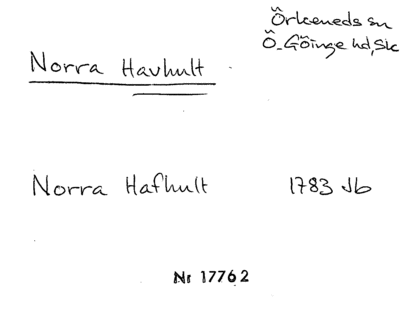 Örkeneds sn
Ö. Göinge hd, Sk
Norra Havhult
Norra Hafhult 1783 Jb
Nr 17762